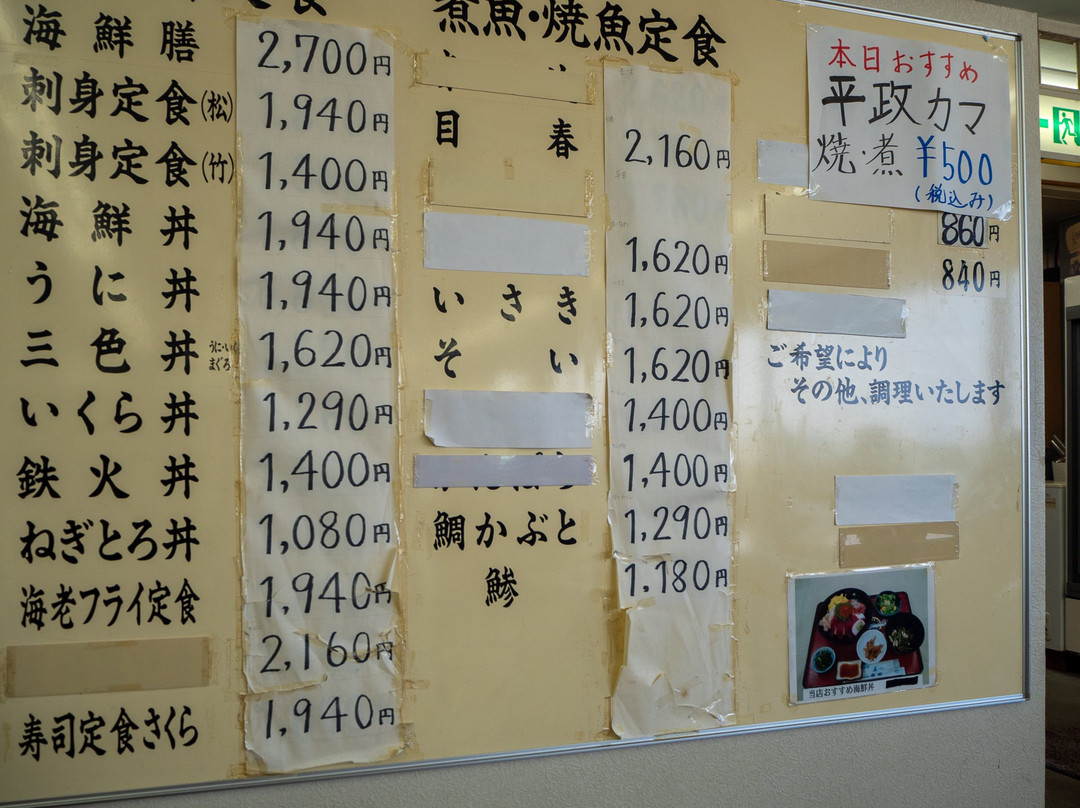 食
海鮮膳 2,700円
刺身定食(松) 1,940円
刺身定食(竹) 1,400円
海鮮丼 1,940円
うに丼 1,940円
三色丼 うに・いくら まぐろ 1,620円
いくら丼 1,290円
鉄火丼 1,400円
ねぎとろ丼 1,080円
海老フライ定食 1,940円
2,160円
寿司定食さくら 1,940円
煮魚・焼魚定食
目春 2,160円
1,620円
いさき 1,620円
そい 1,620円
1,400円
1,400円
鯛かぶと 1,290円
鯵 1,180円
本日おすすめ
平政カマ
焼・煮 ¥500
(税込み)
860円
840円
ご希望により
その他、調理いたします
当店おすすめ海鮮丼